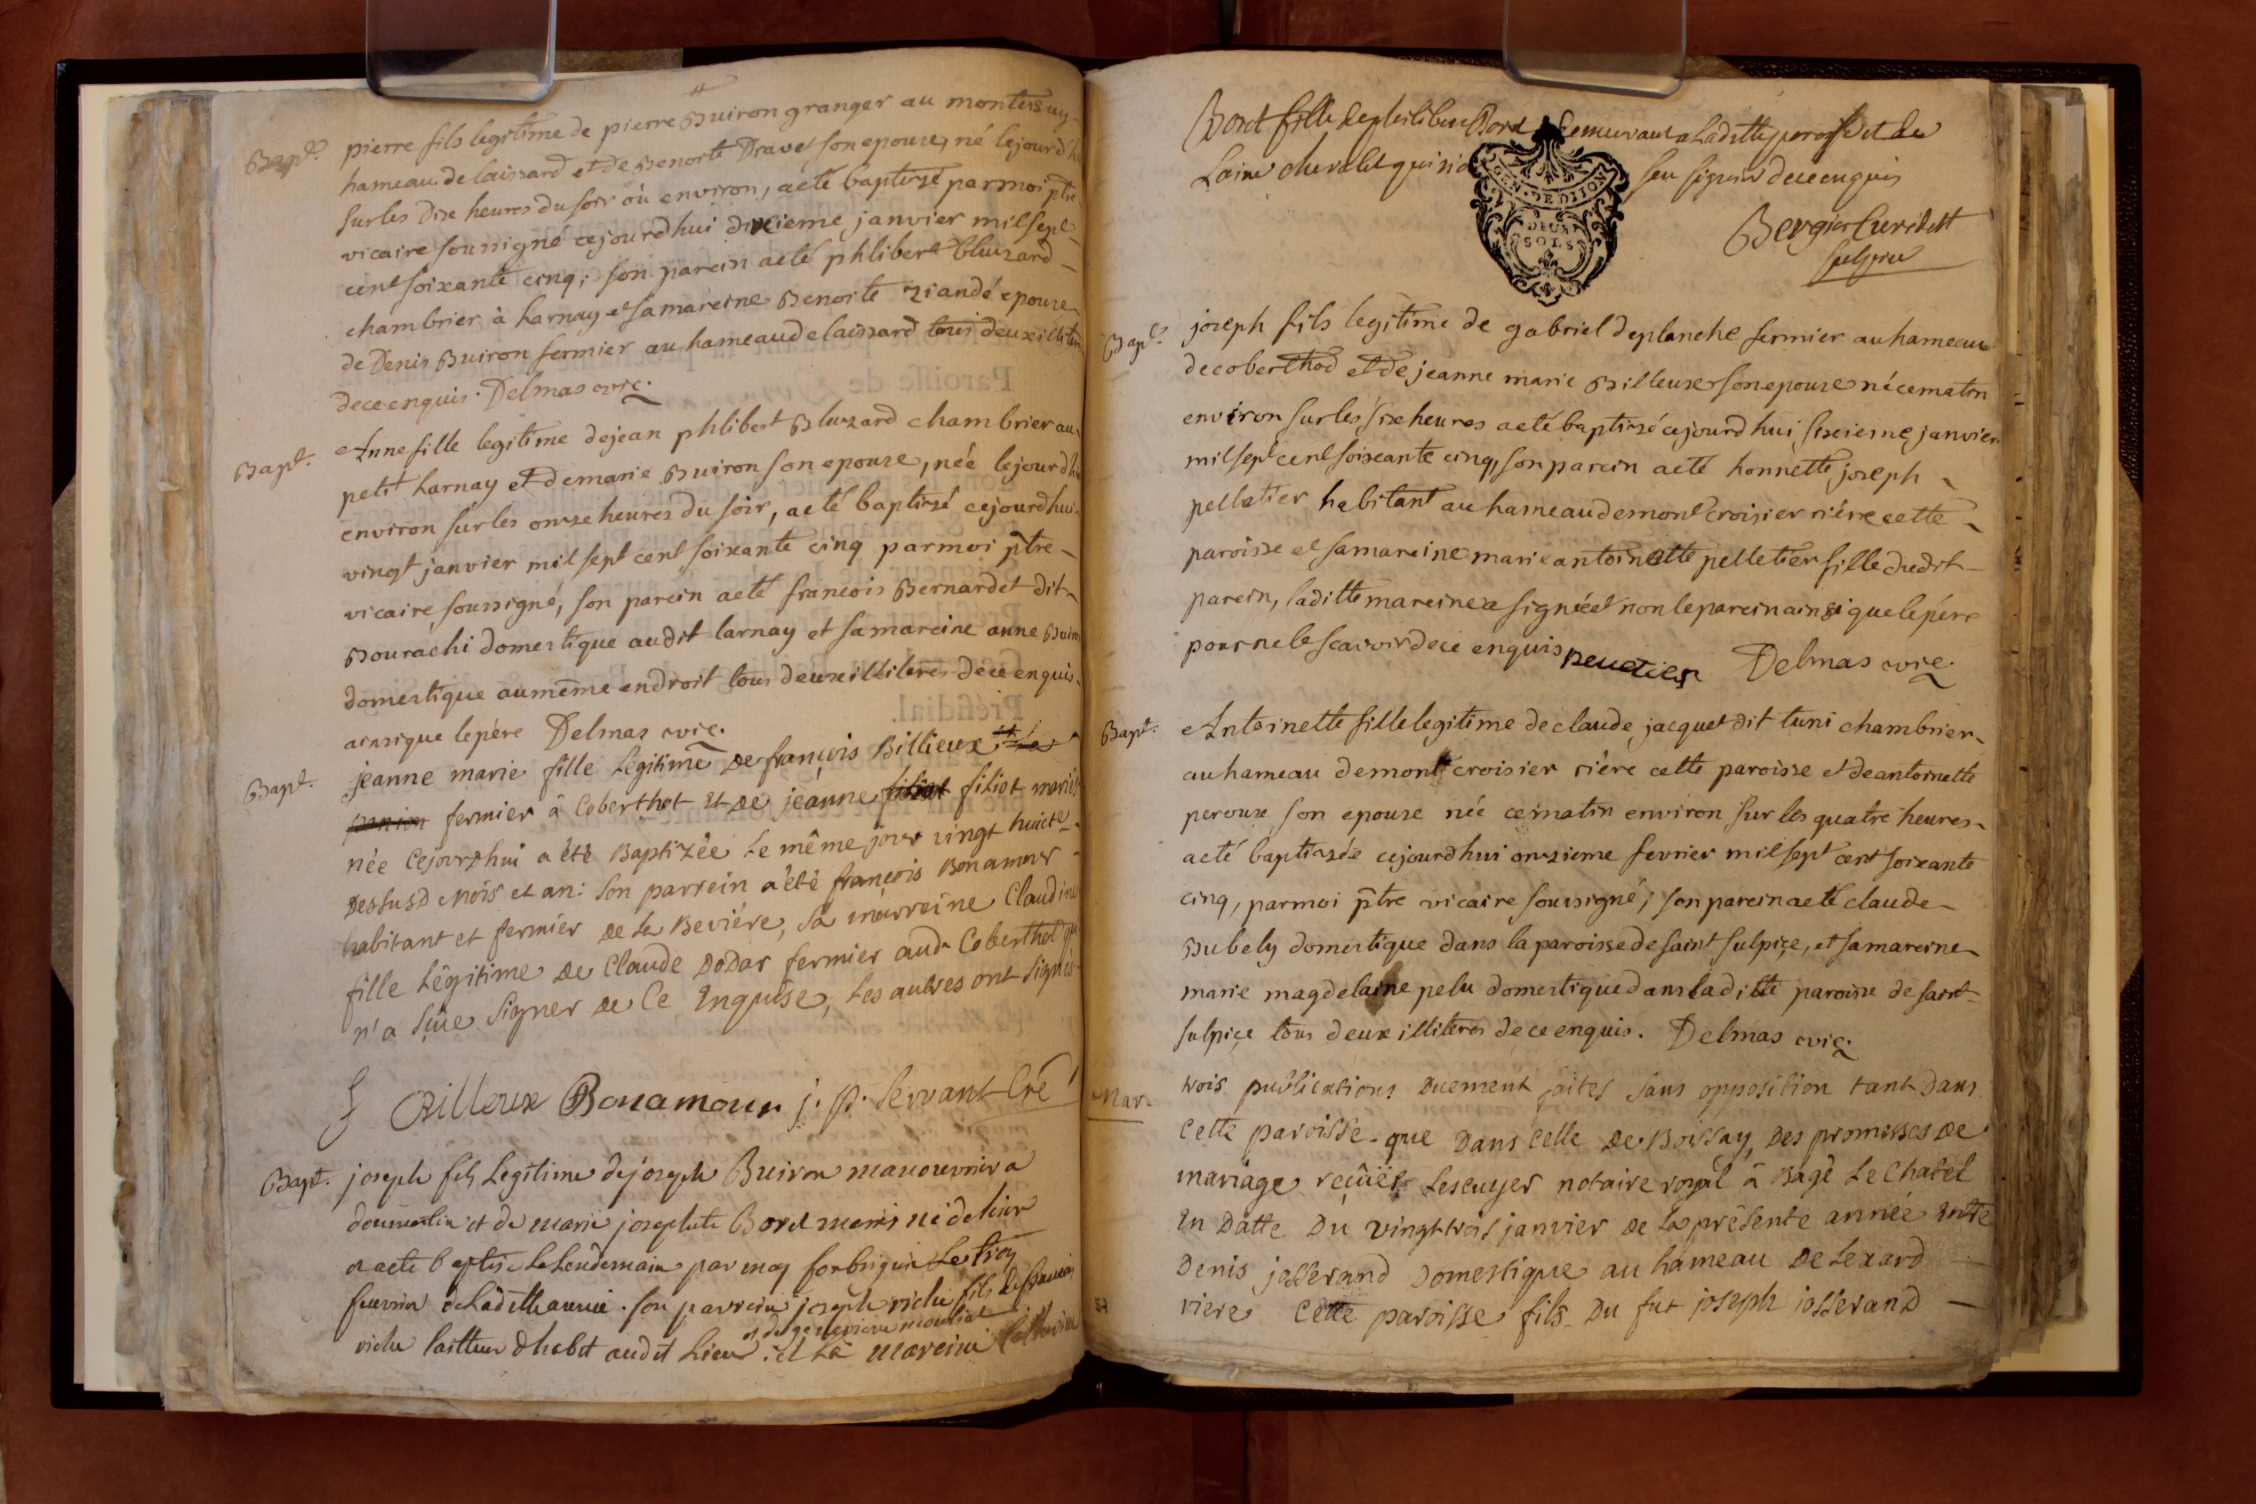 Bapt.
pierre fils legitime de pierre Buiron granger au montessuy
hameau de laissard et de Benoite Dravet son epouse, né lejourd'hu
sur les dix heures du soir où environ, a eté baptisé par moi ptre
vicaire soussigné cejourdhui dixieme janvier mil sept
cent soixante cinq; son parein a eté phlibert Bluzard
chambrier à harnay et sa mareine Benoite riandé epouse
de Denis Buiron fermier au hameau de laissard tous deux illiteres
de ce enquis. Delmas vic.
Bapt.
Anne fille legitime de jean phlibert Bluzard chambrier au
petit harnay et de marie Buiron son epouse, née lejourdhu
environ sur les onze heures du soir, a eté baptisé cejourdhui
vingt janvier mil sept cent soixante cinq par moi ptre
vicaire soussigné, son parein a eté francois Bernardet dit
Bourachi domestique audit larnay et sa mareine anne Buiron
domestique au même endroit tous deux illiteres de ce enquis
ainsi que le père Delmas vic.
Bapt.
jeanne marie fille Légitime De françois Billieux
fermier à Coberthot et de jeanne filiot mariés
née Cejourdhui a été Baptizée Le même jour vingt huict
Dessusd mois et an: Son parrein a été françois Bonamour
habitant et fermier de La Beviére, Sa marreine Claudine
fille Légitime De Claude DoDar fermier aud Coberthot qui
n'a Sçûe Signer de Ce Enquise, Les autres ont Signés
f Billoux Bonamour j. p. Servant Cre
Bapt.
joseph fils Legitime de joseph Buiron manouvrier a
et de marie josephte Boret mariés né de hier
a eté baptisé Le Lendemain par moy Le trois
fevrier de Laditte année. son parrein joseph vichu fils de francois
et de genevieve
vichu habit audit Lieu et La mareine
Boret fille de philibert Boret demeurant a Laditte paroisse et de
GEN. DE DIJON
DEUX
SOLS
seu signer de ce enquis
Bergier Curé de St
Sulpice
Bapt.
joseph fils legitime de gabriel deplanche fermier au hameau
de coberthod et de jeanne marie Billeux son epouse né ce matin
environ sur les six heures a eté baptisé cejourd'hui sixieme janvier
mil sept cent soixante cinq, son parein a eté honnette joseph
pelletier habitant au hameau de mont croisier riére cette
paroisse et sa mareine marie antoinette pelletier fille dudit
parein, laditte mareine a signée et non le parein ainsi que le pére
pour ne le scavoir de ce enquis peuetier Delmas vic.
Bapt.
Antoinette fille legitime de claude jacquet dit tuni chambrier
au hameau de mont croisier riére cette paroisse et de antoinette
peroux son epouse née ce matin environ sur les quatre heures
a eté baptisée cejourdhui onzieme fevrier mil sept cent soixante
cinq, par moi ptre vicaire soussigné; son parein a eté claude
Bubely domestique dans la paroisse de saint sulpiçe, et sa mareine
marie magdelaine pelu domestique dans laditte paroisse de saint
sulpiçe tous deux illiteres de ce enquis. Delmas vic.
Mar.
trois publications Duement faites sans opposition tant Dans
Cette paroisse que Dans Celle De Boissay, Des promesses De
mariage reçûës Lescuyer notaire royal à Bagé Le Chatel
En Datte Du vingt trois janvier De La présente année Entre
Denis josserand Domestique au hameau De Lexard
riere Cette paroisse fils Du fut joseph josserand